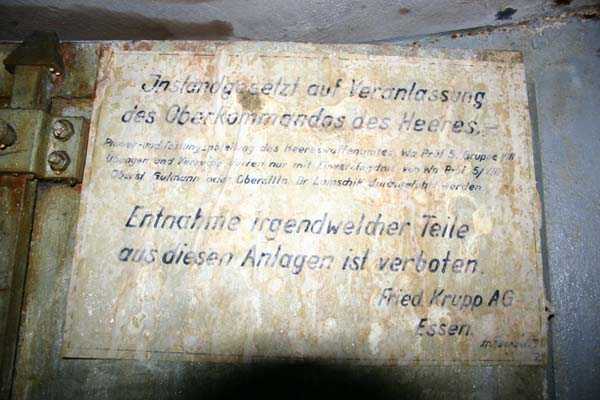 Instandgesetzt auf Veranlassung
des Oberkommandos des Heeres.–
Pionier-und Festungsbeirag des Heereswaffenamtes, Wa Prüf 5, Gruppe
Übungen und Versuche dürfen nur mit von Wa Prüf 5/
Oberst Gutmann oder Dr durchgeführt werden.
Entnahme irgendwelcher Teile
aus diesen Anlagen ist verboten.
Fried. Krupp AG
Essen.